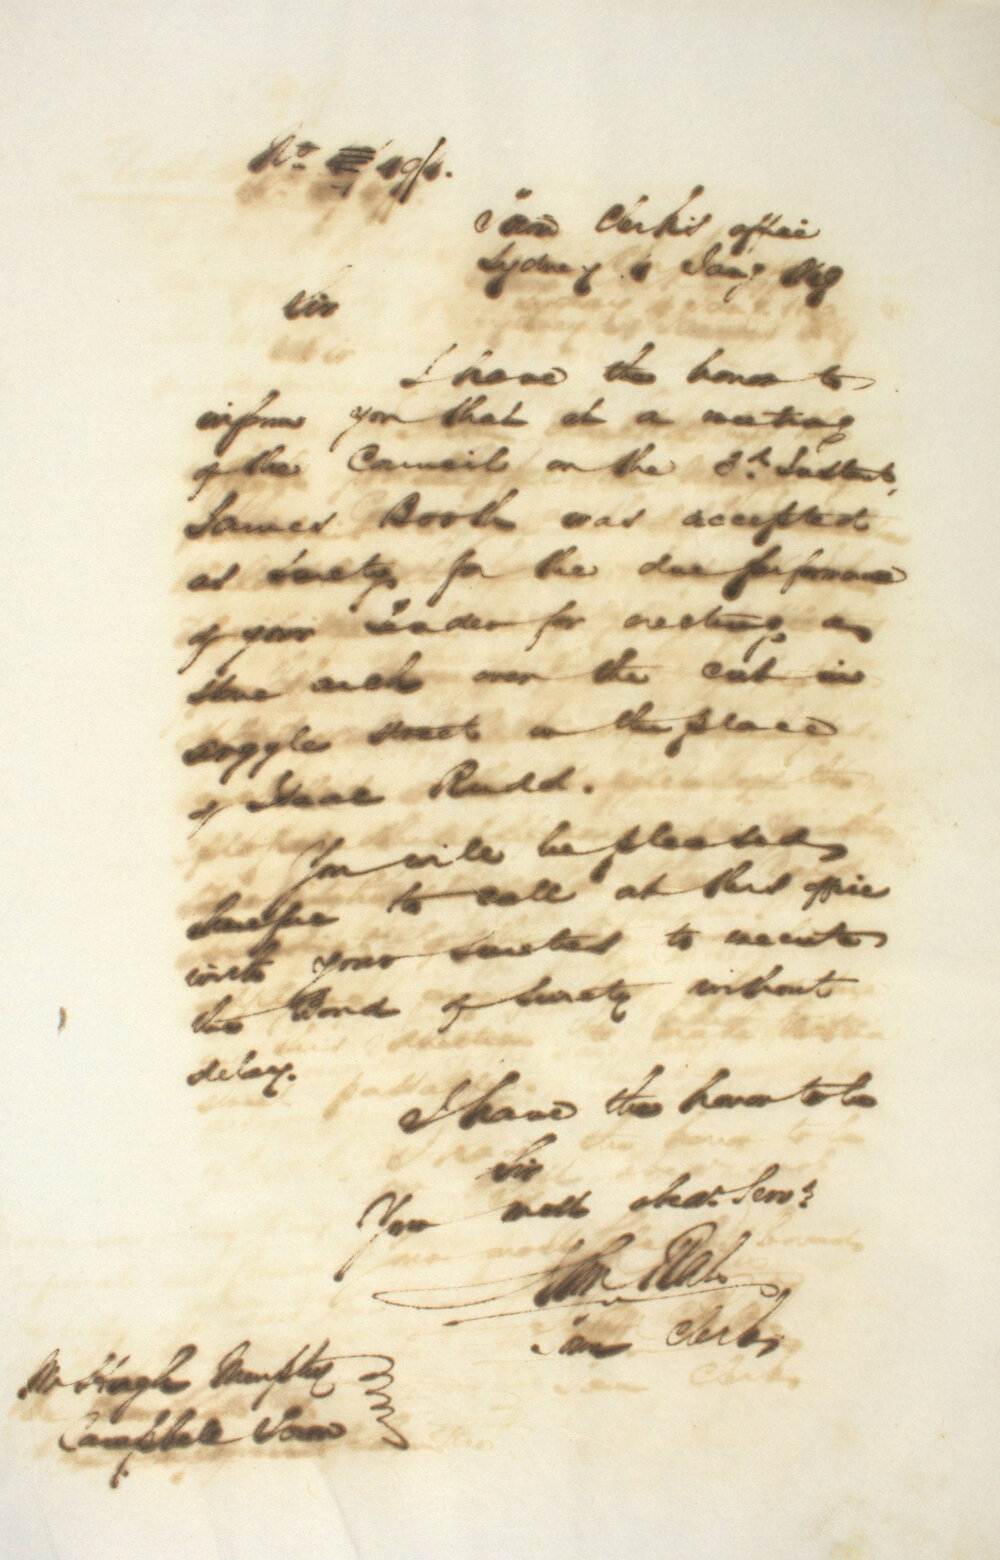 No 49/1.
Town Clerk's office
Sydney 4 Jany 1849
Sir
I have the honor to
inform you that at a meeting
of the Council on the 3d Instant,
James Booth was accepted
as Surety for the due performance
of your Tender for erecting a
stone arch over the cut in
argyle street in the place
of Isaac Rudd.
You will be pleased
therefore to call at this office
with your sureties to execute
the Bond of Surety without
delay.
I have the honor to be
Sir
Your most obedt. Servt.
John Rae
Town Clerk
Mr Hugh
Campbell Town